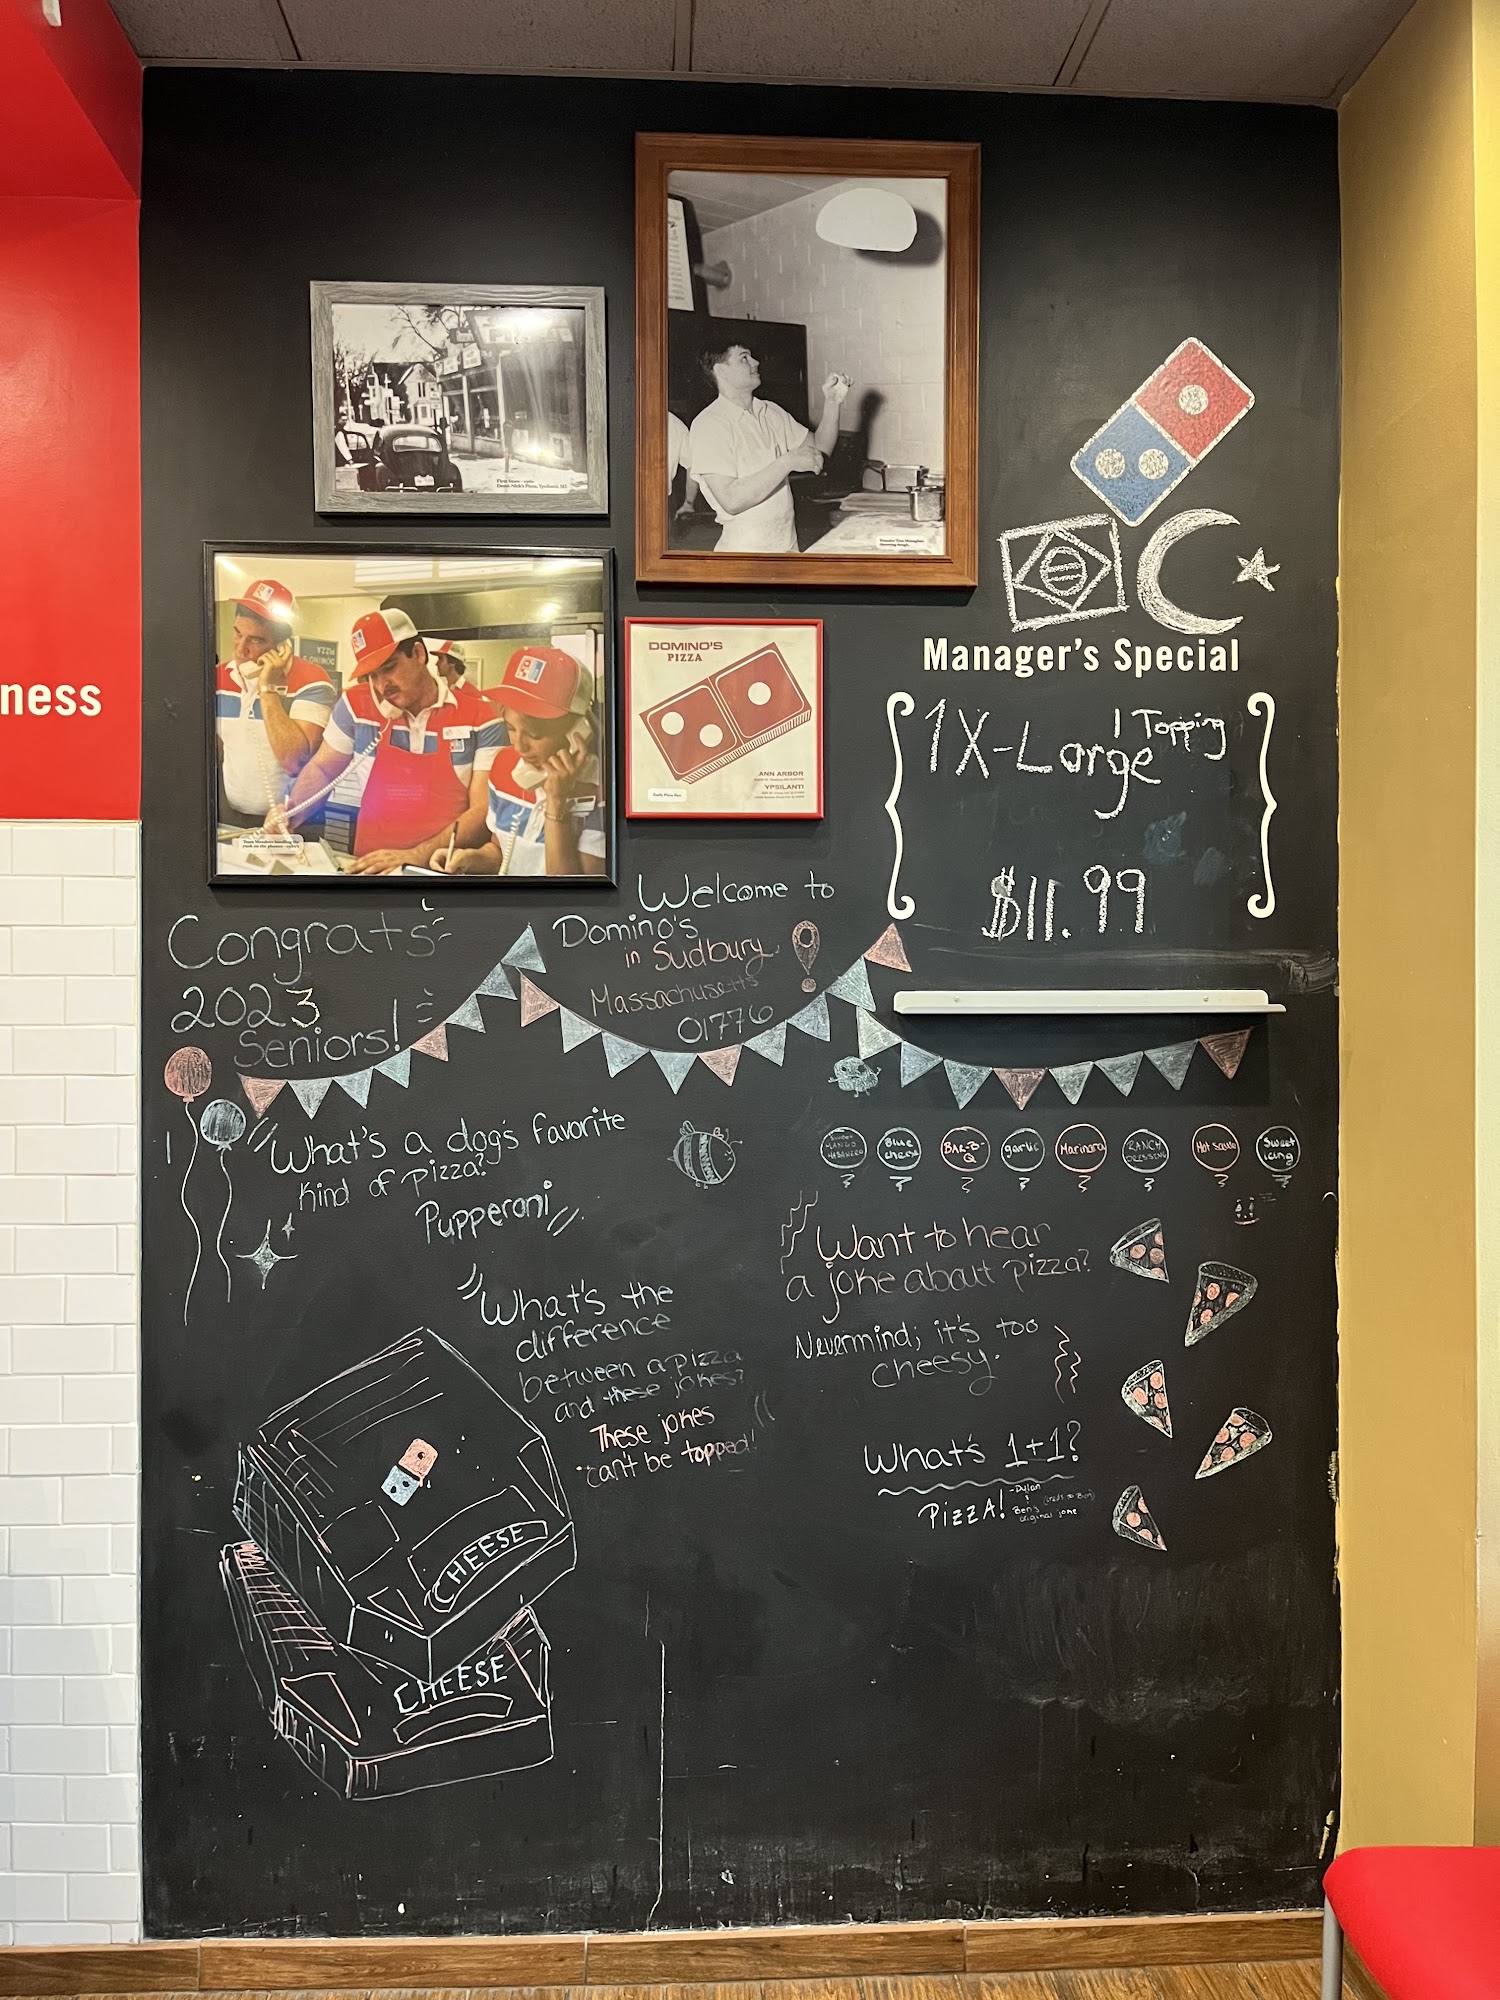 ness
First Store - 1960
Domi-Nick's Pizza, Ypsilanti, MI
Founder Tom Monaghan
throwing dough.
Team Members handling the
rush on the phones - 1980's
DOMINO'S
PIZZA
ANN ARBOR
YPSILANTI
Early Pizza Box
Manager's Special
1X-Large 1 Topping
$11.99
Congrats
2023
Seniors!
Welcome to
Domino's
in Sudbury
Massachusetts
01776
What's a dog's favorite
kind of pizza?
Pupperoni
Sweet
MANGO
HABANERO
Blue
cheese
BAR-B-
Q
garlic
Marinara
RANCH
DRESSING
Hot sauce
Sweet
icing
What's the
difference
between a pizza
and these jokes?
These jokes
can't be topped!
Want to hear
a joke about pizza?
Nevermind; it's too
cheesy.
What's 1+1?
PIZZA!
-Dylan
Ben's
original joke
CHEESE
CHEESE